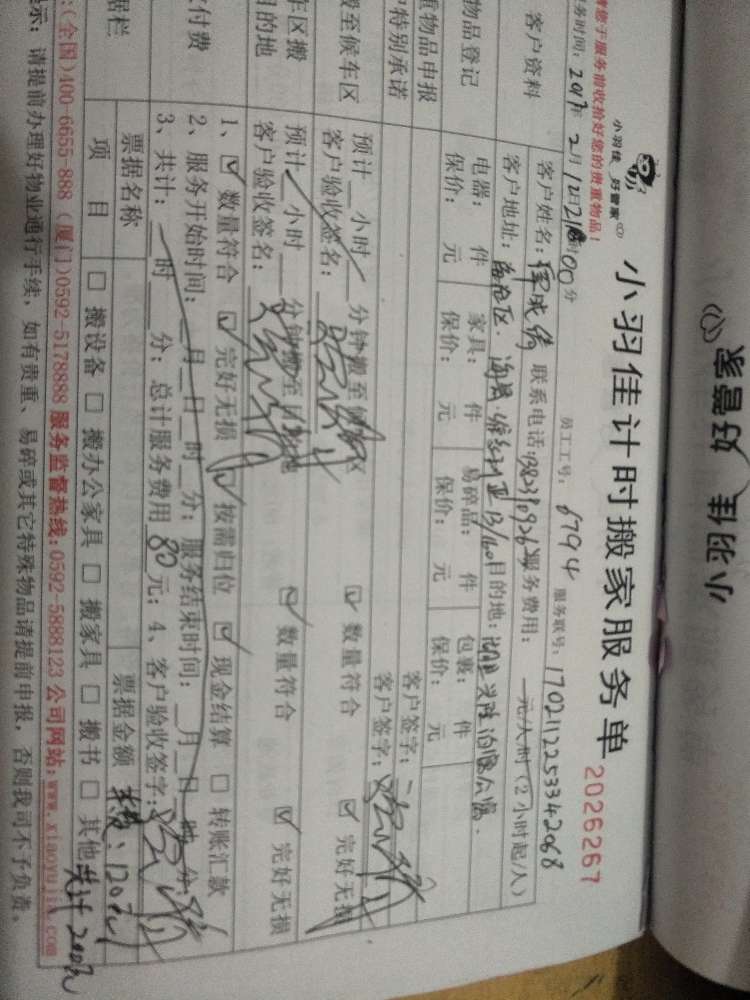 好管家
小羽佳
小羽佳 好管家
小羽佳计时搬家服务单
2026267
请您于服务前收拾好您的贵重物品!
务时间: 2017年2月12日 时00分 员工工号: 6794 服务联号: 1702112253342068
客户资料
客户姓名: 联系电话: 服务费用: 元/人/时(2小时起/人)
客户地址: 海沧区. 目的地:
物品登记
电器: 件 家具: 件 易碎品: 件 包裹: 件
保价: 元 保价: 元 保价: 元 保价: 元
重物品申报
客户签字:
户特别承诺
客户签字:
搬至候车区
预计 小时 分钟搬至候车区 ☑ 数量符合 ☑ 完好无损
客户验收签名:
车区搬
目的地
预计 小时 分钟搬至目的地 ☑ 数量符合 ☑ 完好无损
客户验收签名:
付费
1、☑ 数量符合 ☑ 完好无损 ☑ 按需归位 ☑ 现金结算 □ 转账汇款
2、服务开始时间: 月 日 时 分; 服务结束时间: 月 日 时 分;
3、共计: 时 分; 总计服务费用 80 元; 4、客户验收签字:
据栏
票据名称 票据金额 120元
项 目 □ 搬设备 □ 搬办公家具 □ 搬家具 □ 搬书 □ 其他 共计200元
:(全国)400-6655-888 (厦门)0592-5178888 服务监督热线:0592-5888123 公司网站:www.xiaoyujia.com
示: 请提前办理好物业通行手续, 如有贵重、易碎或其它特殊物品请提前申报, 否则我司不予负责。